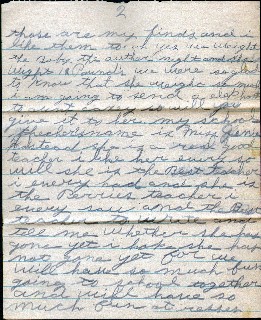 2
those are my finds and i
like them to oh yes we weight
the baby the auther night and she
Wight 18 Pounds we were so glad
to know that she weight so much
i am going to send
to it so will you
give it to her my school
teachers name is Miss
she is a real good
teacher i like her every so
will she is the Best teacher
i every had and she is
the Perries teacher i
every saw and the Best
to write and
tell me whether she has
gone yet i hope she has
not gone yet for we
will have so much fun
going to school together
and will have so
much fun at recess